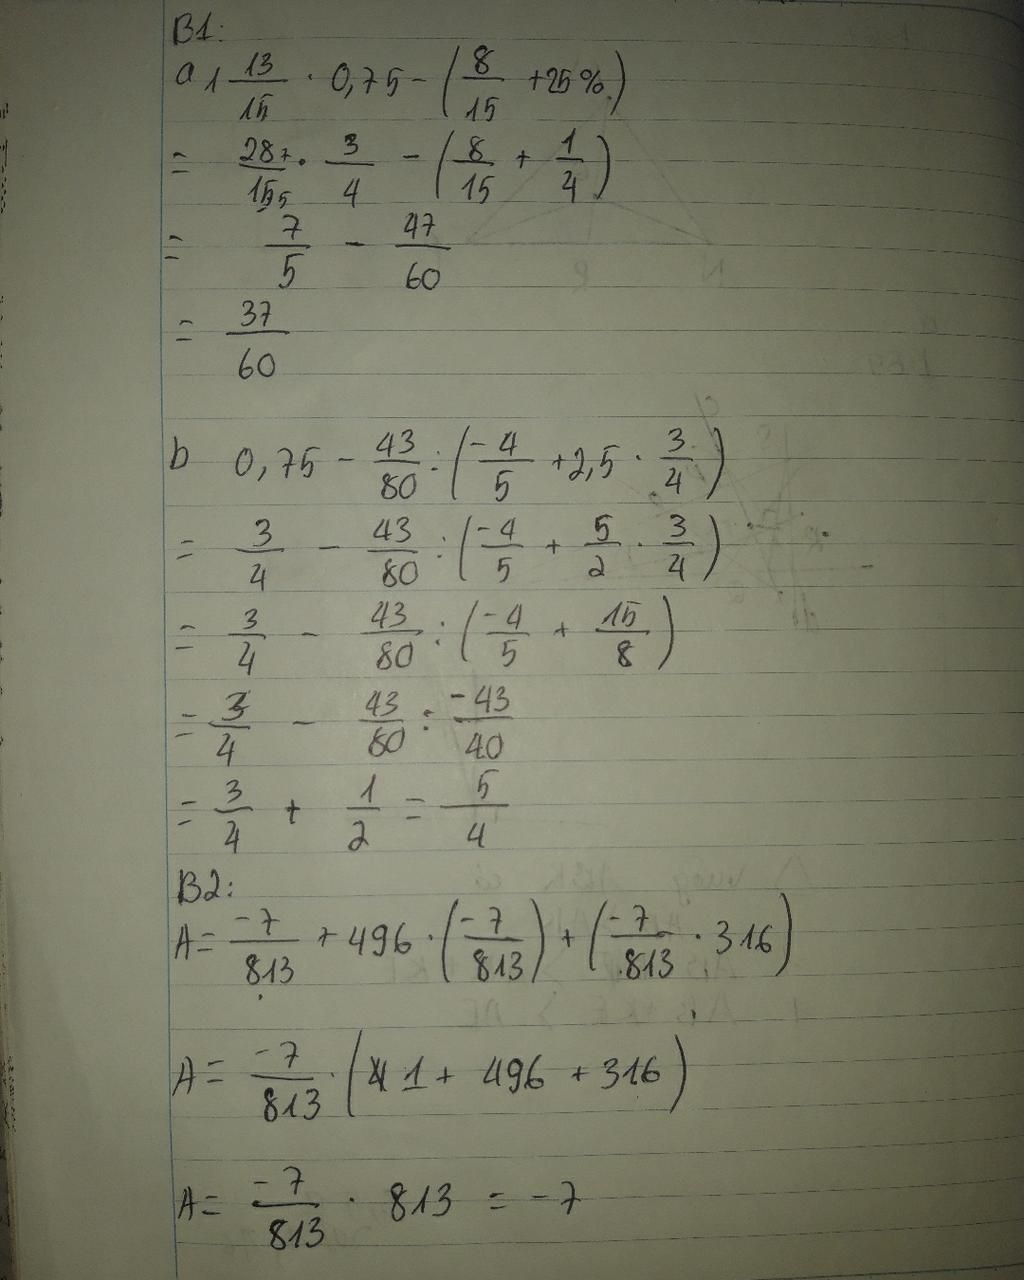 B1:
a 1 13/15 · 0,75 - (8/15 + 25%)
= 28/15 · 3/4 - (8/15 + 1/4)
= 7/5 - 47/60
= 37/60
b 0,75 - 43/80 : (-4/5 + 2,5 · 3/4)
= 3/4 - 43/80 : (-4/5 + 5/2 · 3/4)
= 3/4 - 43/80 : (-4/5 + 15/8)
= 3/4 - 43/80 : -43/40
= 3/4 + 1/2 = 5/4
B2:
A = -7/813 + 496 · (-7/813) + (-7/813 · 316)
A = -7/813 · (1 + 496 + 316)
A = -7/813 · 813 = -7